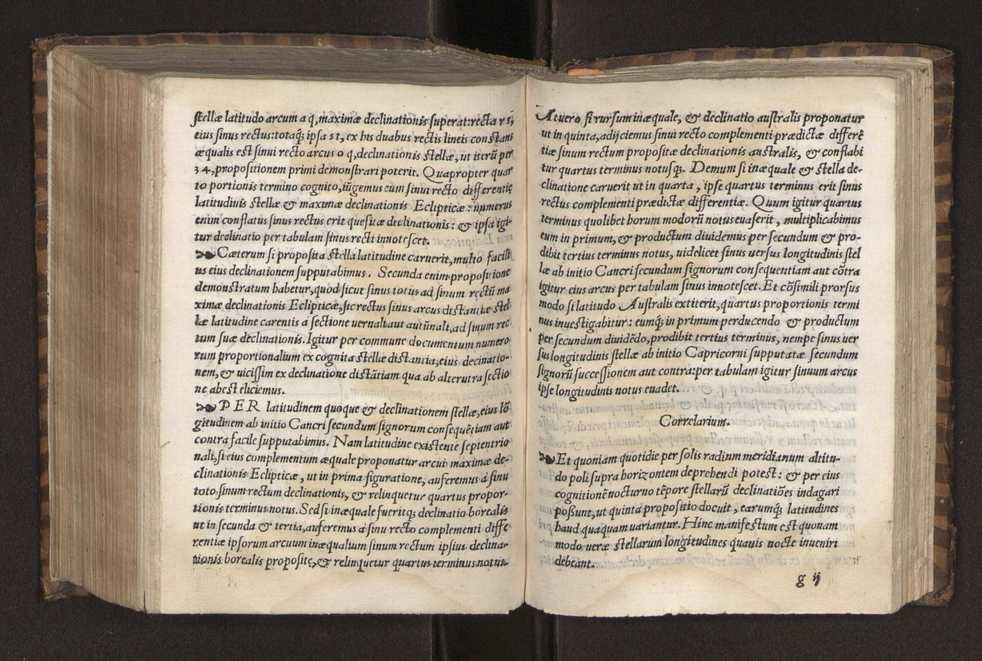 stellæ latitudo arcum a q, maximæ declinationis superat: recta r s,
eius sinus rectus: totaq́; ipsa s t, ex his duabus rectis lineis constans
æqualis est sinui recto arcus o q, declinationis stellæ, ut iterũ per
34, propositionem primi demonstrari poterit. Quapropter quar
to portionis termino cognito, iũgemus eum sinui recto differentiæ
latitudinis stellæ & maximæ declinationis Eclipticæ: numerus
enim conflatus sinus rectus erit quesitæ declinationis: & ipsa igi
tur declinatio per tabulam sinus recti innotescet.
Cæterum si proposita stella latitudine caruerit, multo facili
us eius declinationem supputabimus. Secunda enim propositione
demonstratum habetur, quòd sicut sinus totus ad sinum rectũ ma
ximæ declinationis Eclipticæ, sic rectus sinus arcus distantiæ stel
læ latitudine carentis a sectione uernali aut autũnali, ad sinum rec
tum suæ declinationis. Igitur per commune documentum numero-
rum proportionalium ex cognita stellæ distantia, eius declinatio-
nem, & uicissim ex declinatione distãtiam qua ab alterutra sectio
ne abest eliciemus.
PER latitudinem quoque & declinationem stellæ, eius lõ
gitudinem ab initio Cancri secundum signorum consequẽtiam aut
contra facile supputabimus. Nam latitudine existente septentrio
nali, si eius complementum æquale proponatur arcui maximæ de-
clinationis Eclipticæ, ut in prima figuratione, auferemus á sinu
toto, sinum rectum declinationis, & relinquetur quartus propor-
tionis terminus notus. Sed si inæquale fuerit, q́; declinatio borealis
ut in secunda & tertia, auferemus á sinu recto complementi diffe
rentiæ ipsorum arcuum inæqualium sinum rectum ipsius declina-
tionis borealis propositæ, & relinquetur quartus terminus notus.
At uero si rursum inæquale, & declinatio australis proponatur
ut in quinta, adijciemus sinui recto complementi prædictæ differẽ
tiæ sinum rectum propositæ declinationis australis, & conflabi
tur quartus terminus notusq́;. Demum si inæquale & stella de-
clinatione caruerit ut in quarta, ipse quartus terminus erit sinus
rectus complementi prædictæ differentiæ. Quum igitur quartus
terminus quolibet horum modorũ notus euaserit, multiplicabimus
eum in primum, & productum diuidemus per secundum & pro-
dibit tertius terminus notus, uidelicet sinus uersus longitudinis stel
læ ab initio Cancri secundum signorum consequentiam aut cõtra
igitur eius arcus per tabulam sinus innotescet. Et cõsimili prorsus
modo si latitudo Australis extiterit, quartus proportionis termi
nus inuestigabitur: eumq́; in primum perducendo & productum
per secundum diuidẽdo, prodibit tertius terminus, nempe sinus uer
sus longitudinis stellæ ab initio Capricorni supputatæ secundum
signorũ successionem aut contra: per tabulam igitur sinuum arcus
ipse longitudinis notus euadet.
Correlarium.
Et quoniam quotidie per solis radium meridianum altitu-
do poli supra horizontem deprehendi potest: & per eius
cognitionẽ nocturno tẽpore stellarũ declinatiões indagari
possunt, ut quinta propositio docuit, earumq́; latitudines
haud quaquam uariantur. Hinc manifestum est quonam
modo ueræ stellarum longitudines quauis nocte inueniri
debeant.
g ij